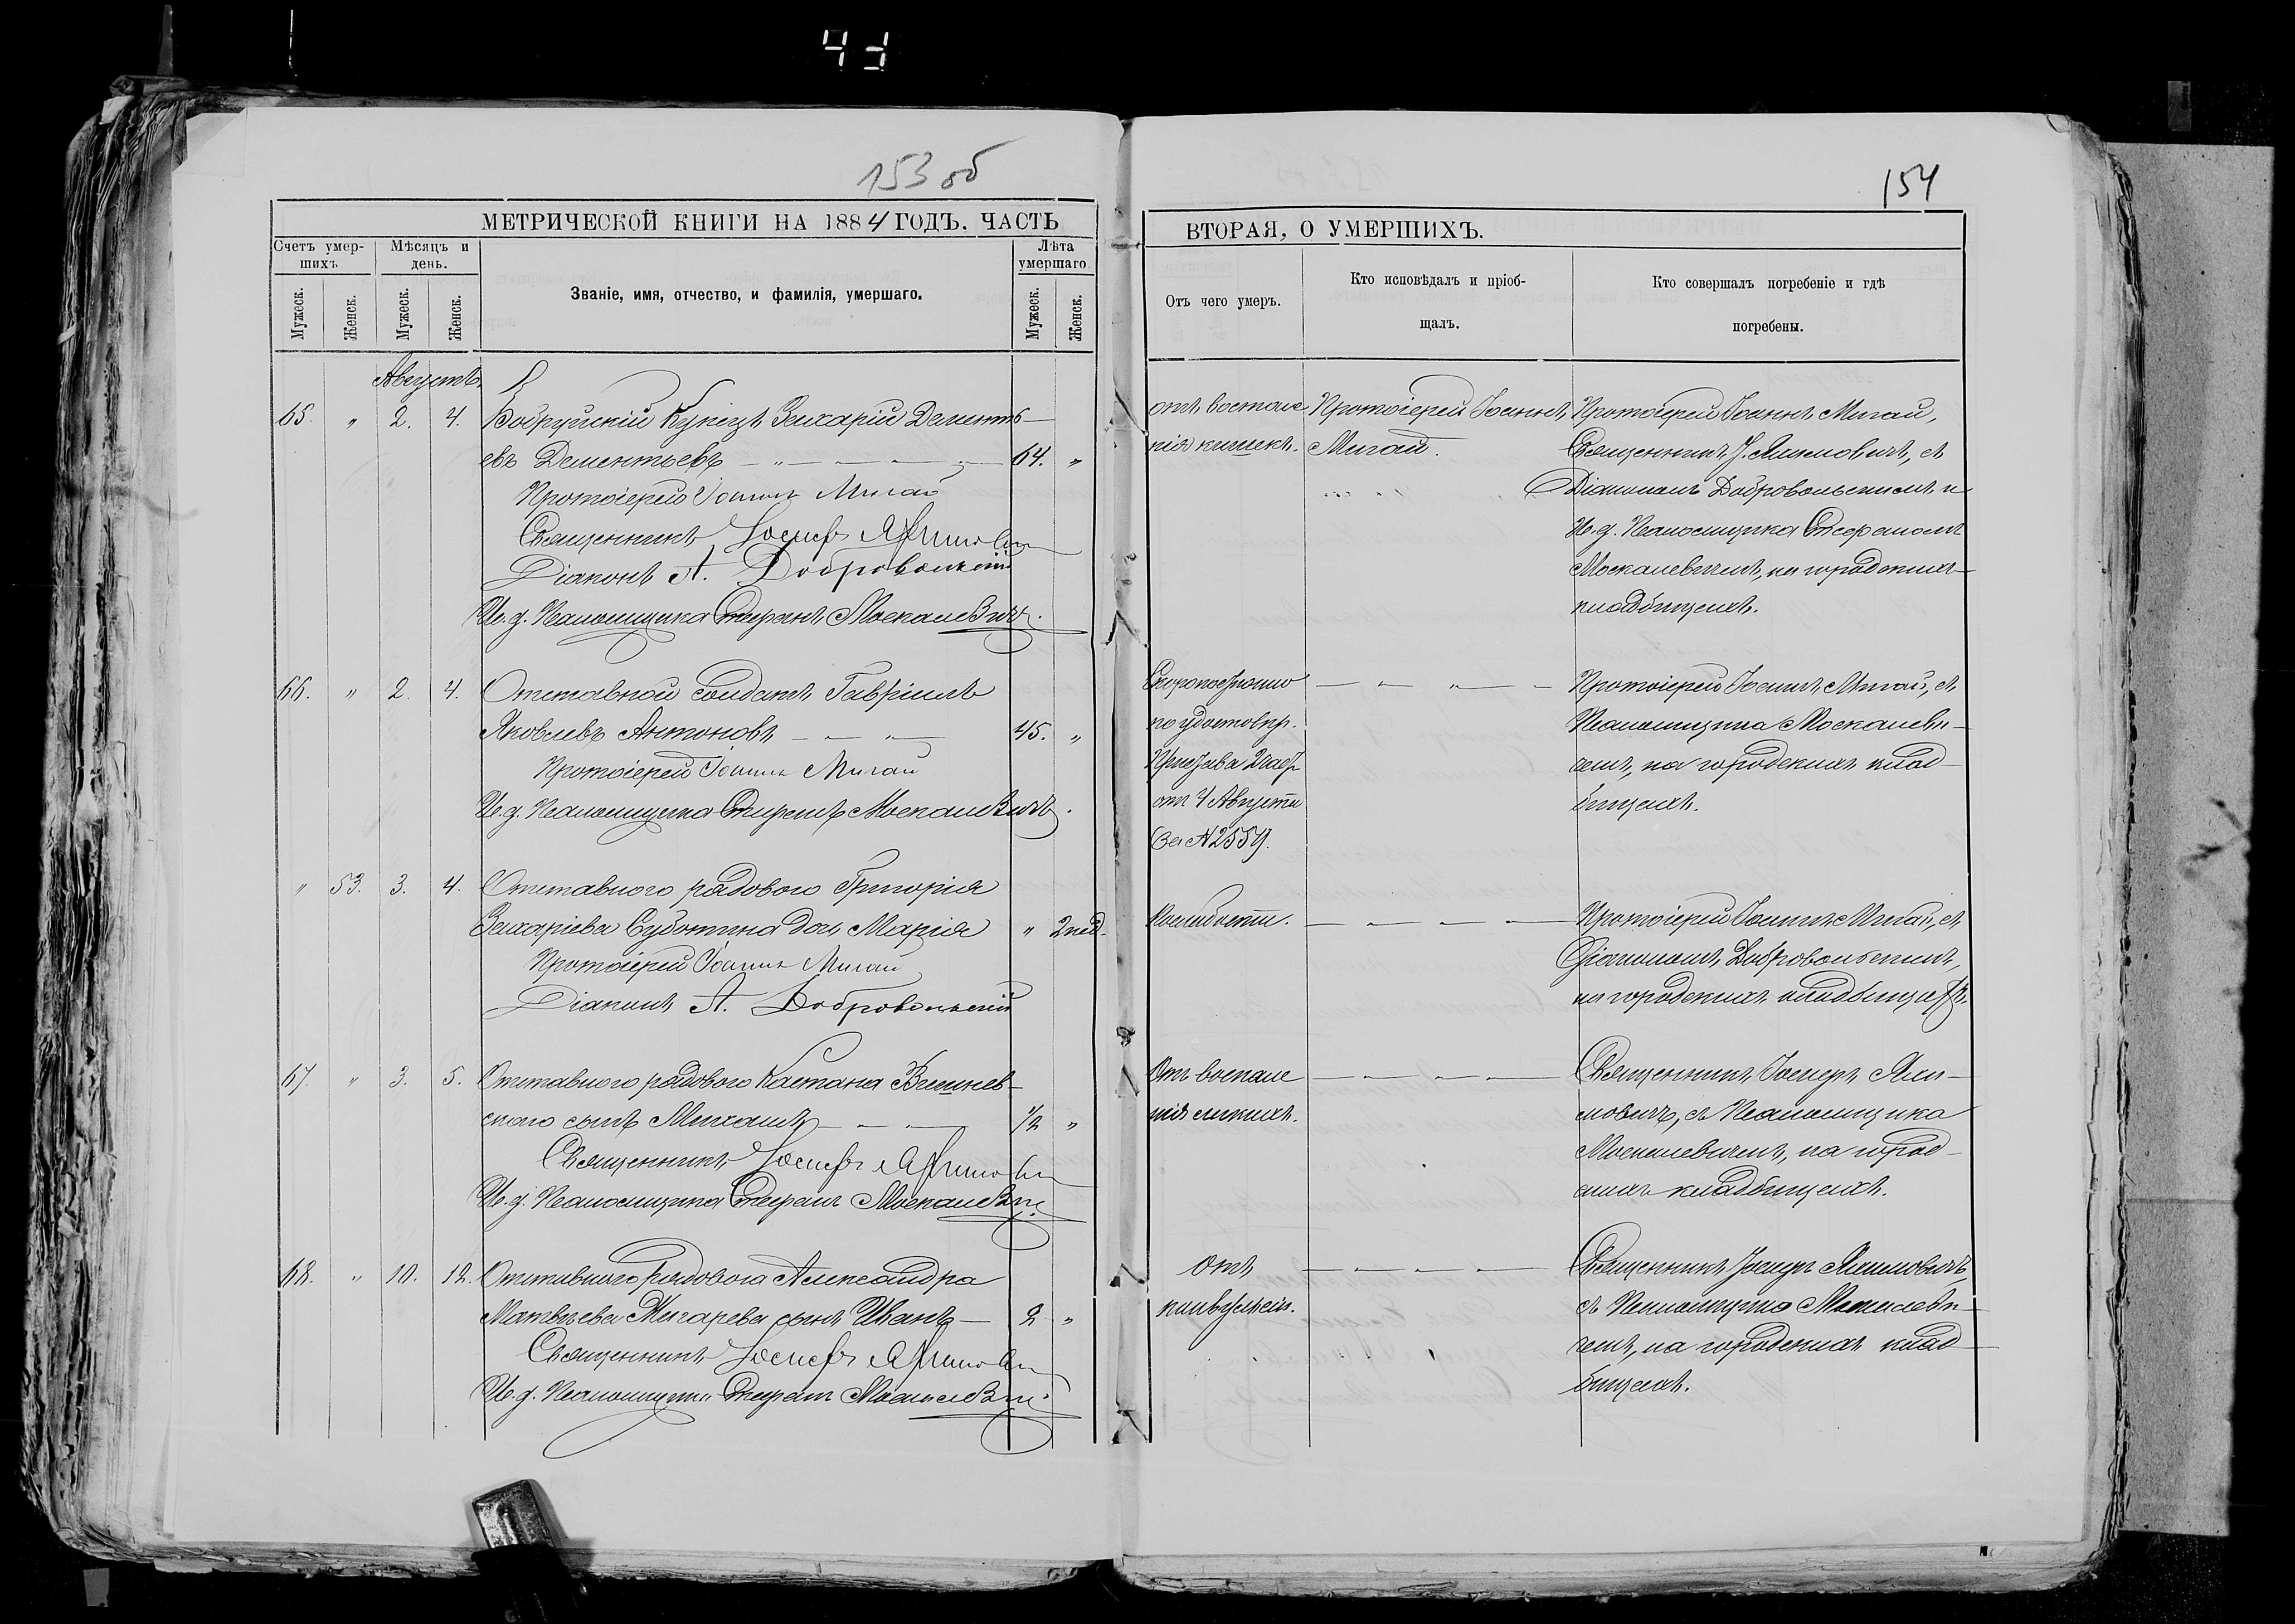 153 об
154
МЕТРИЧЕСКОЙ КНИГИ НА 1884 ГОДЪ. ЧАСТЬ
ВТОРАЯ, О УМЕРШИХЪ.
Счетъ умер-
шихъ
Мѣсяцъ и
день.
Званіе, имя, отчество, и фамилія, умершаго.
Лѣта
умершаго
Мужеск.
Женск.
Мужеск.
Женск.
Мужеск.
Женск.
Отъ чего умеръ.
Кто исповѣдалъ и пріоб-
щалъ.
Кто совершалъ погребеніе и гдѣ
погребены.
Августъ.
65. " 2. 4. Бобруйскій Купецъ Захарій Демента-
евъ Дементьевъ 64. "
Протоіерей Іоаннъ Мигай
Священникъ Іосифъ
Діаконъ А. Добровольскій
И. д. Псаломщика Стефанъ Москалевичъ.
отъ воспале
нія кишекъ.
Протоіерей Іоаннъ
Мигай.
Протоіерей Іоаннъ Мигай,
Священникъ І. съ
Діакономъ Добровольскимъ и
И. д. Псаломщика Стефаномъ
Москалевичемъ, на городскихъ
кладбищахъ.
66. " 2. 4. Отставной солдатъ Гавріилъ
Яковлевъ Антоновъ 45. "
Протоіерей Іоаннъ Мигай
И. д. Псаломщика Стефанъ Москалевичъ.
Скоропостижно
по удостовѣр.
Пристава
отъ 4 Августа
За № 2559.
Протоіерей Іоаннъ Мигай, съ
Псаломщика Москалеви-
чемъ, на городскихъ клад-
бищахъ.
" 53. 3. 4. Отставного рядового Григорія
Захаріева Суботина дочь Марія " 2 нед.
Протоіерей Іоаннъ Мигай
Діаконъ А. Добровольскій
Отъ слабости.
Протоіерей Іоаннъ Мигай, съ
Діакономъ Добровольскимъ,
на городскихъ кладбищахъ.
67. " 3. 5. Отставного рядового Каетана Вишнев-
скаго сынъ Михаилъ 1/2 "
Священникъ Іосифъ
И. д. Псаломщика Стефанъ Москалевичъ
Отъ воспале
нія легкихъ.
Священникъ Іосифъ
съ Псаломщика
Москалевичемъ, на город-
скихъ кладбищахъ.
68. " 10. 12. Отставного рядового Александра
Матвѣева Жигарева сынъ Иванъ 2 "
Священникъ Іосифъ
И. д. Псаломщика Стефанъ Москалевичъ
отъ
конвульсіи.
Священникъ Іосифъ
съ Псаломщика Москалеви-
чемъ, на городскихъ клад-
бищахъ.